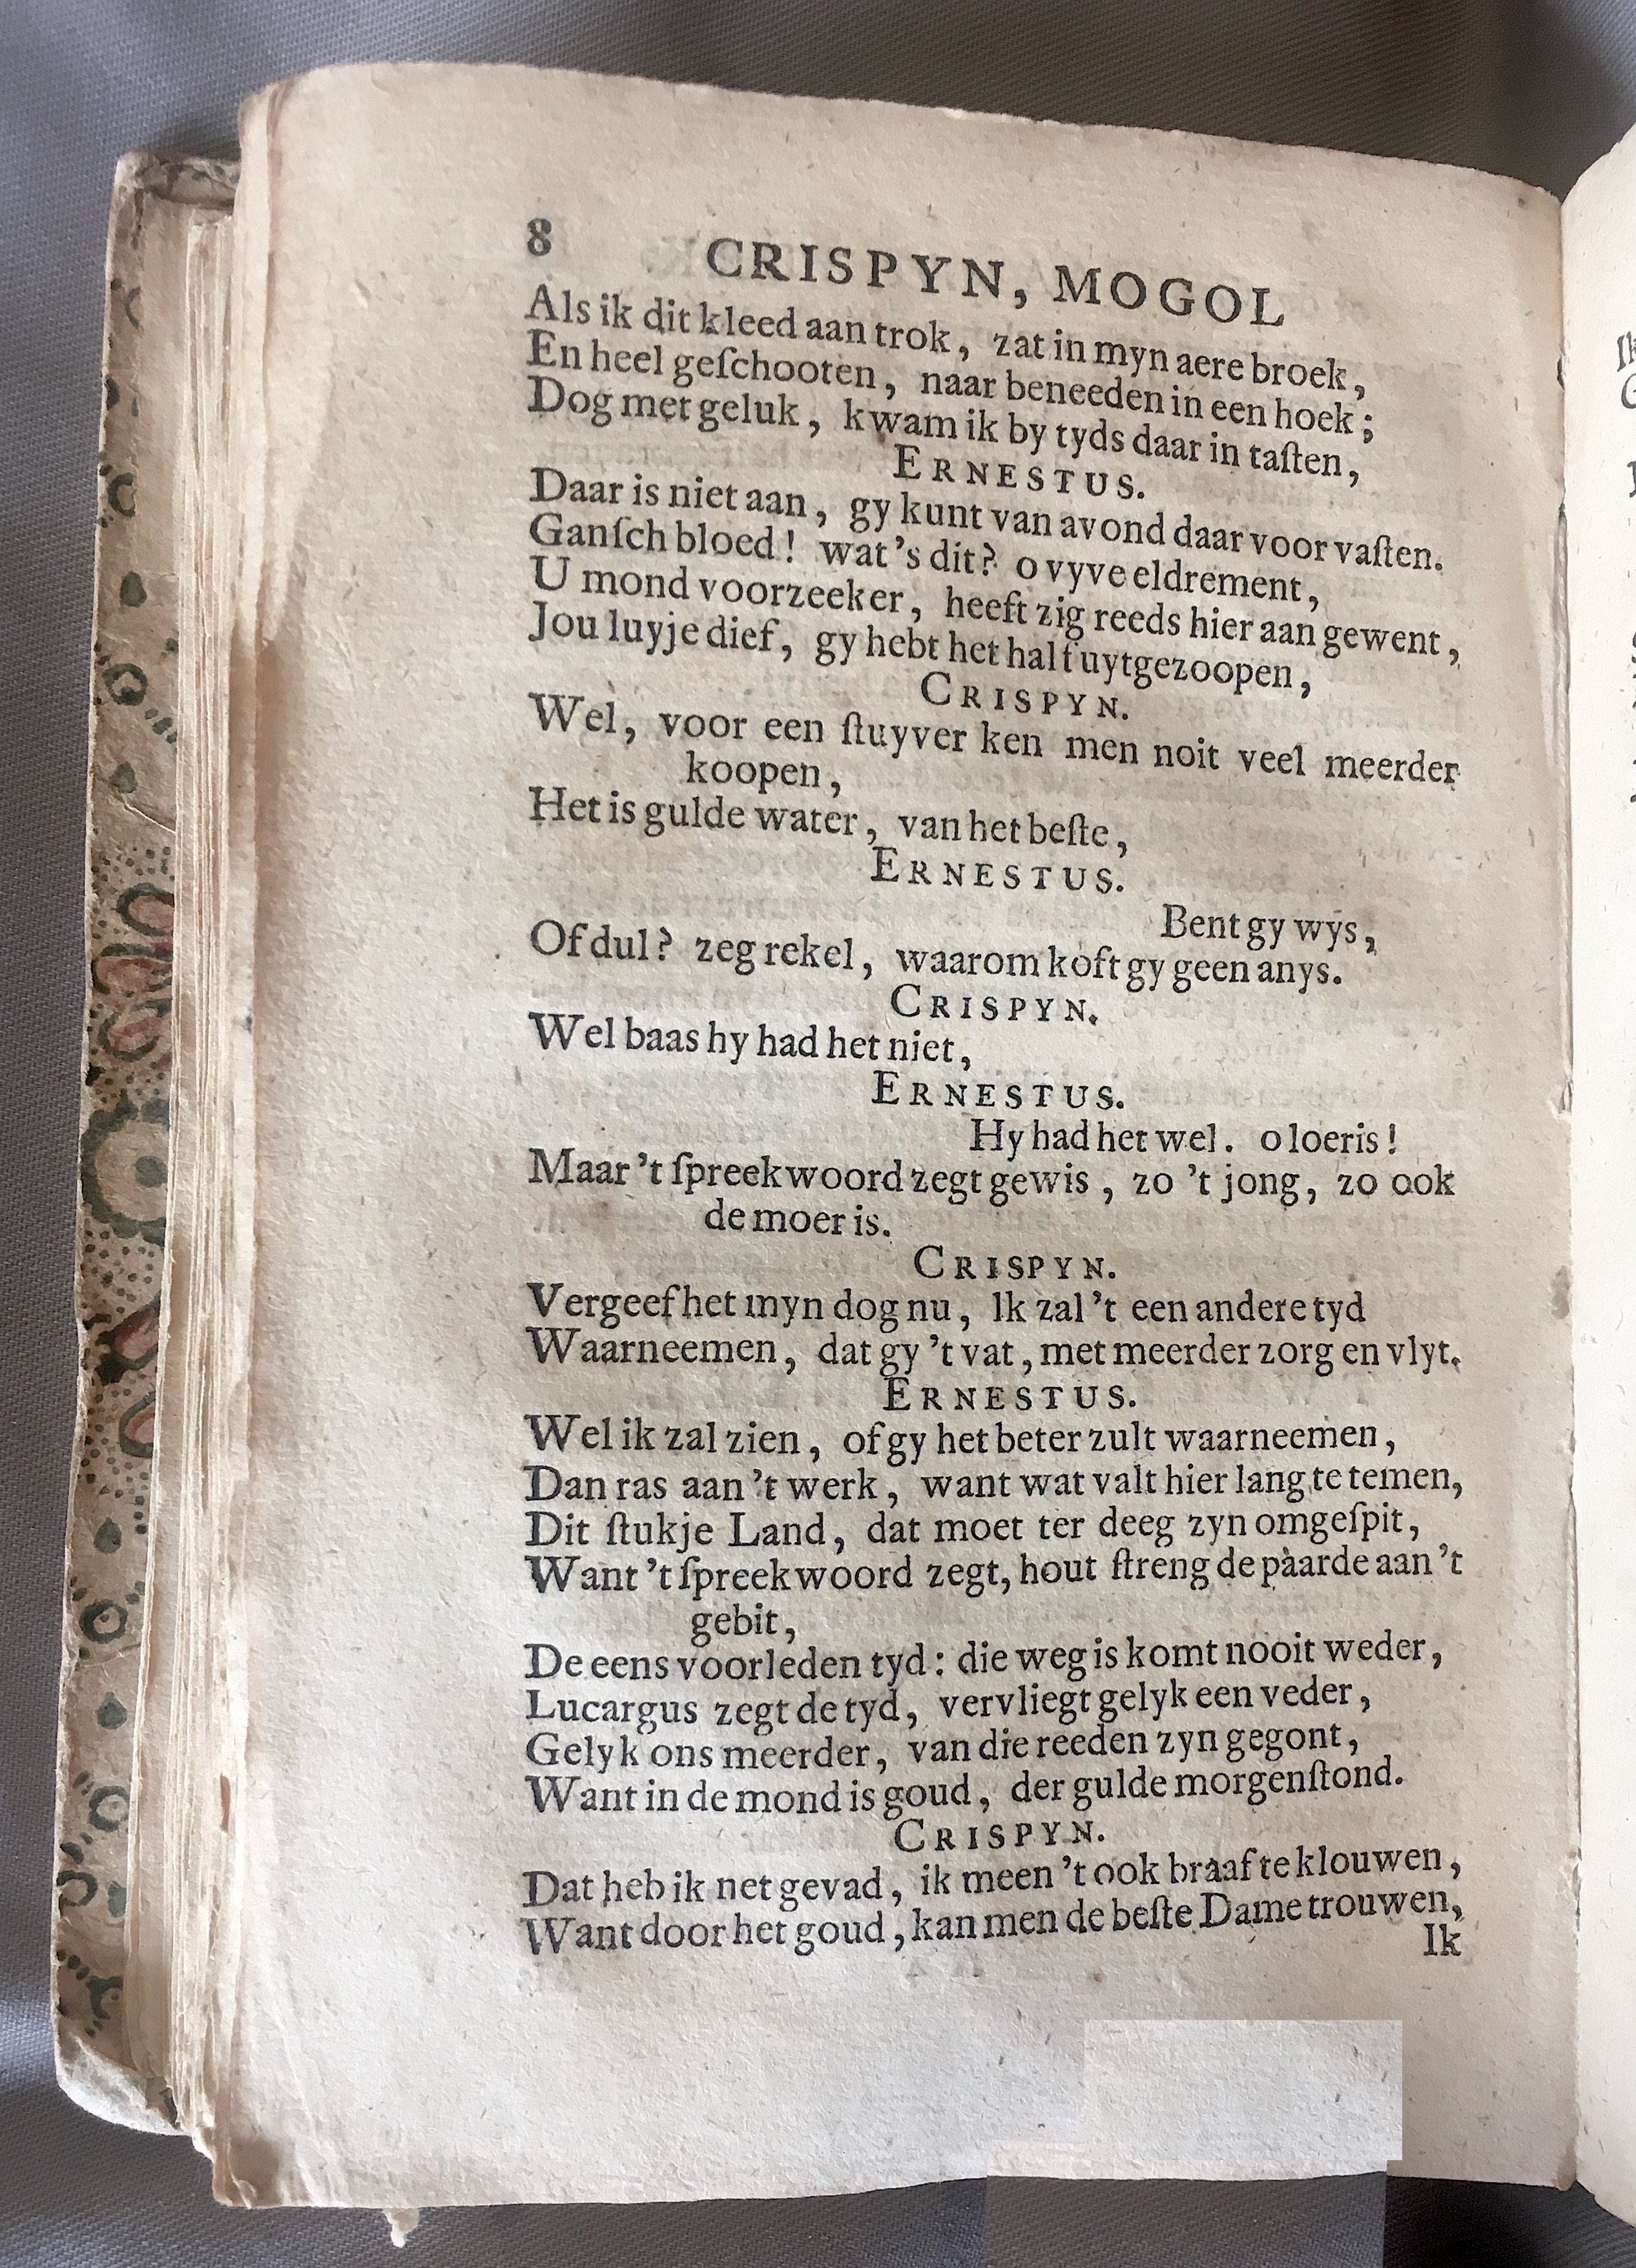 8 CRISPYN, MOGOL
Als ik dit kleed aan trok, zat in myn aere broek,
En heel geſchooten, naar beneeden in een hoek;
Dog met geluk, kwam ik by tyds daar in taſten,
ERNESTUS.
Daar is niet aan, gy kunt van avond daar voor vaſten.
Ganſch bloed! wat 's dit? o vyve eldrement,
U mond voorzeeker, heeft zig reeds hier aan gewent,
Jou luyje dief, gy hebt het half uytgezoopen,
CRISPYN.
Wel, voor een ſtuyver ken men noit veel meerder
koopen,
Het is gulde water, van het beſte,
ERNESTUS.
Bent gy wys,
Of dul? zeg rekel, waarom koft gy geen anys.
CRISPYN.
Wel baas hy had het niet,
ERNESTUS.
Hy had het wel. o loeris!
Maar 't ſpreekwoord zegt gewis, zo 't jong, zo ook
de moer is.
CRISPYN.
Vergeef het myn dog nu, Ik zal 't een andere tyd
Waarneemen, dat gy 't vat, met meerder zorg en vlyt.
ERNESTUS.
Wel ik zal zien, of gy het beter zult waarneemen,
Dan ras aan 't werk, want wat valt hier lang te temen,
Dit ſtukje Land, dat moet ter deeg zyn omgeſpit,
Want 't ſpreekwoord zegt, hout ſtreng de paarde aan 't
gebit,
De eens voorleden tyd: die weg is komt nooit weder,
Lucargus zegt de tyd, vervliegt gelyk een veder,
Gelyk ons meerder, van die reeden zyn gegont,
Want in de mond is goud, der gulde morgenſtond.
CRISPYN.
Dat heb ik net gevad, ik meen 't ook braaf te klouwen,
Want door het goud, kan men de beſte Dame trouwen,
Ik